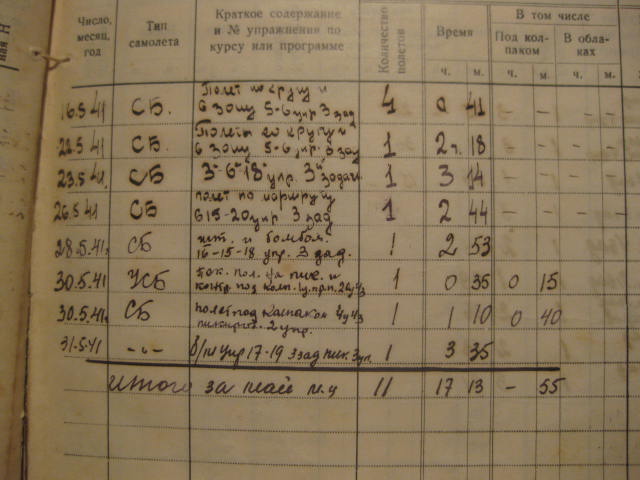 Число, месяц, год
Тип самолета
Краткое содержание и № упражнения по курсу или программе
Количество полетов
Время
В том числе
Под кол-паком
В обла-ках
ч. м. ч. м. ч. м.
16.5.41 СБ. Полет по кругу и в зону 5-6 упр 3 зад 4 0 41 – – – –
22.5.41 СБ. Полеты по кругу и в зону 5-6 упр. 3 зад 1 2 ч. 18 – – – –
23.5.41. СБ 3-6-18 упр. 3й задачи 1 3 14 – – – –
26.5.41 СБ полет по маршруту 615-20 упр 3 зад 1 2 44 – – – –
28.5.41. СБ и бомбом. 16-15-18 упр. 3 зад. 1 2 53
30.5.41. УСБ пол. на пик. и под колп. 1 0 35 0 15
30.5.41. СБ полет под колпаком 2 упр. 1 1 10 0 40
31.5.41 –"– упр 17-19 3 зад пик. 1 3 35
Итого за май м-ц 11 17 13 – 55